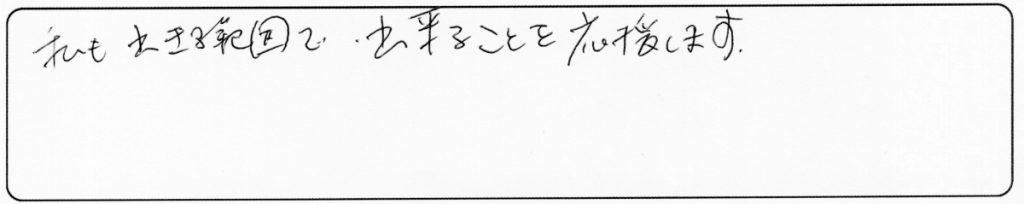 私も出きる範囲で、出来ることを応援します。